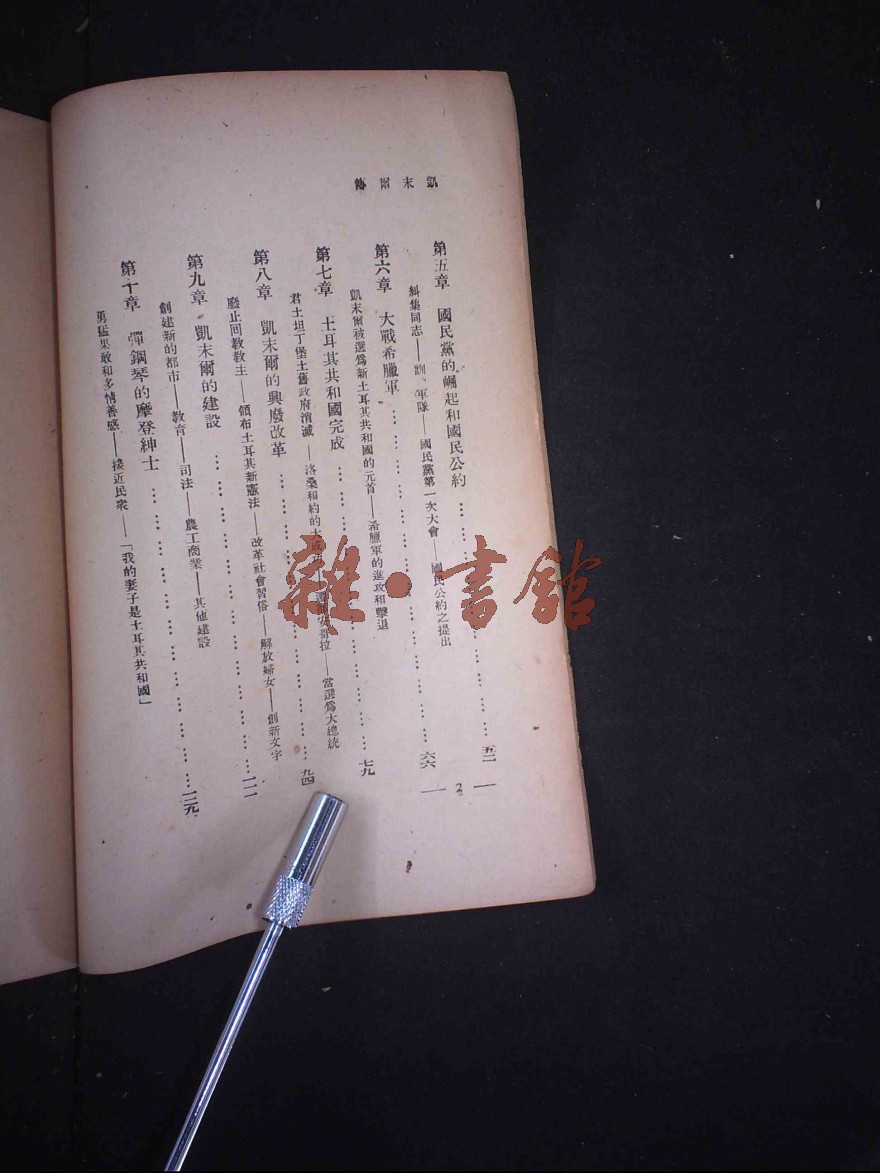 凱末爾傳
第五章 國民黨的崛起和國民公約……五二
糾集同志——訓 軍隊——國民黨第一次大會——國民公約之提出
第六章 大戰希臘軍……六六
凱末爾被選爲新土耳其共和國的元首——希臘軍的進攻和擊退
第七章 土耳其共和國完成……七九
君士坦丁堡土舊政府消滅——洛桑和約的大成功——遷 安哥拉——當選爲大總統
第八章 凱末爾的興廢改革……九四
廢止回教教主——頒布土耳其新憲法——改革社會習俗——解放婦女——創新文字
第九章 凱末爾的建設……一一一
創建新的都市——教育——司法——農工商業——其他建設
第十章 彈鋼琴的摩登紳士……一二九
勇猛果敢和多情善感——接近民衆——「我的妻子是土耳其共和國」
— 2 —
雜·書館